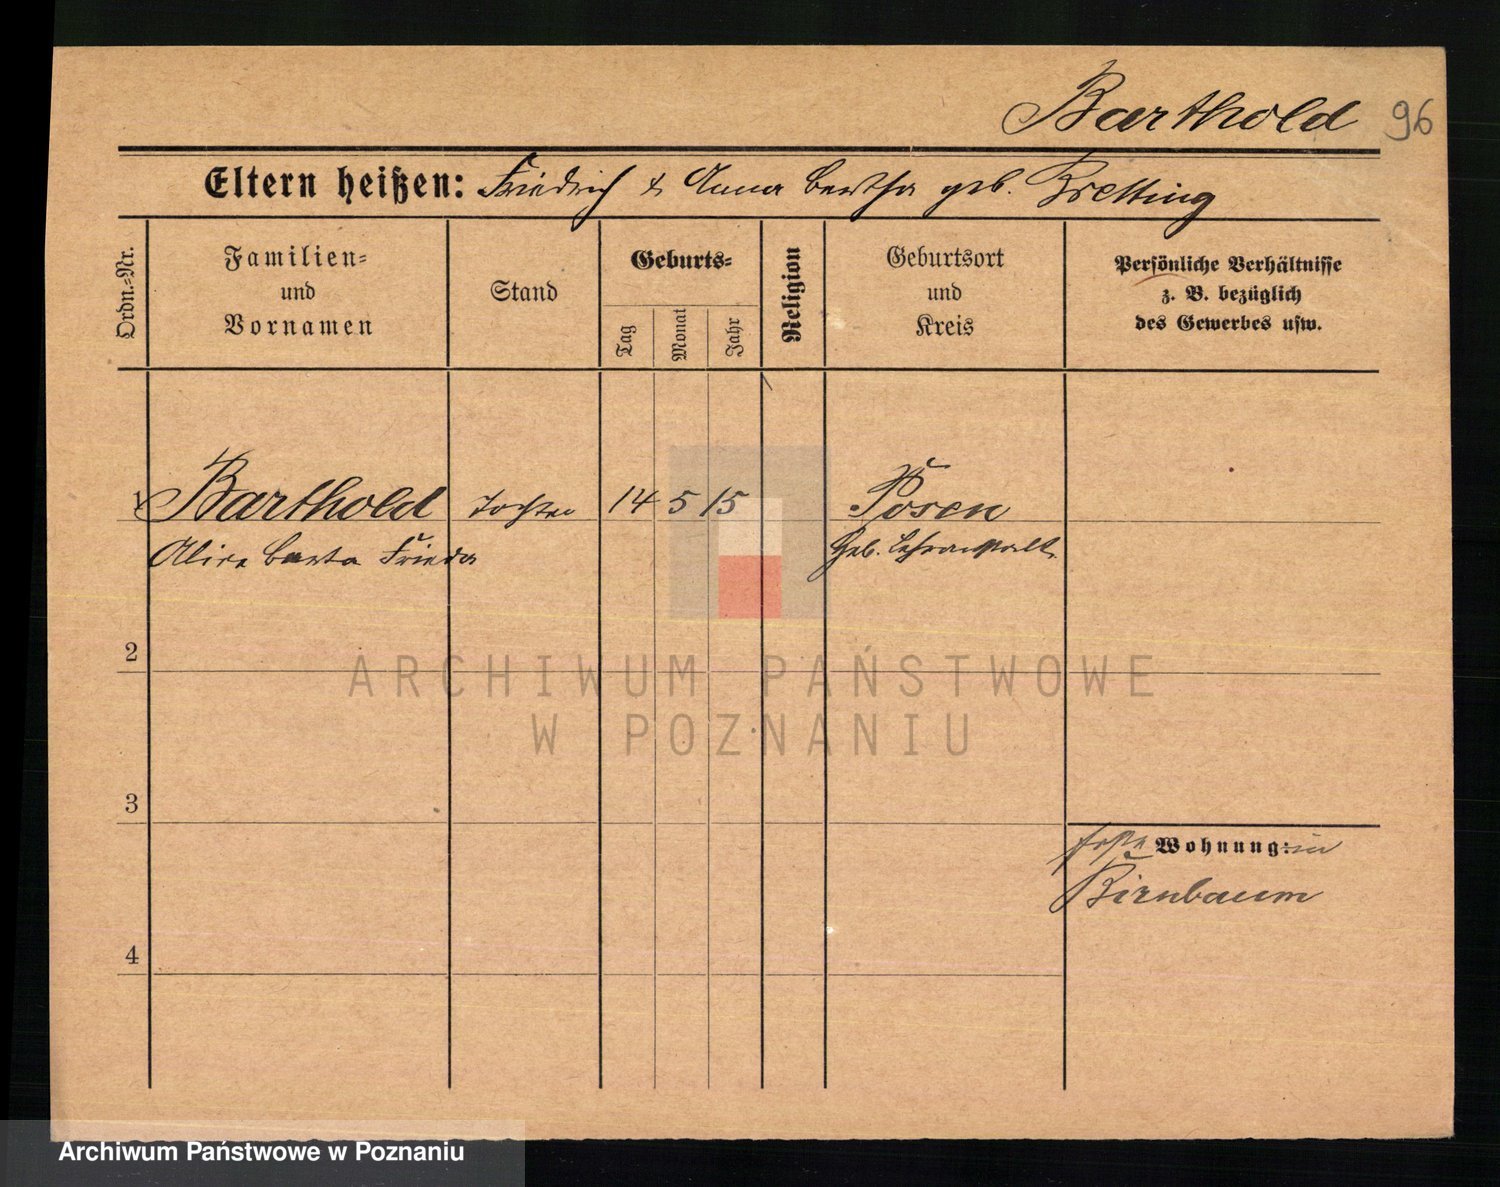 Barthold 96
Eltern heißen: Friedrich & Anna Bertha geb. Bretting
Ordn.-Nr.
Familien-
und
Vornamen
Stand
Geburts-
Tag
Monat
Jahr
Religion
Geburtsort
und
Kreis
Persönliche Verhältnisse
z. B. bezüglich
des Gewerbes usw.
1 Barthold Tochter 14 5 15 Posen
Alice Berta Frieda Geb. Lehranstalt
2
ARCHIWUM PAŃSTWOWE
W POZNANIU
3
Wohnung: in
Birnbaum
4
Archiwum Państwowe w Poznaniu